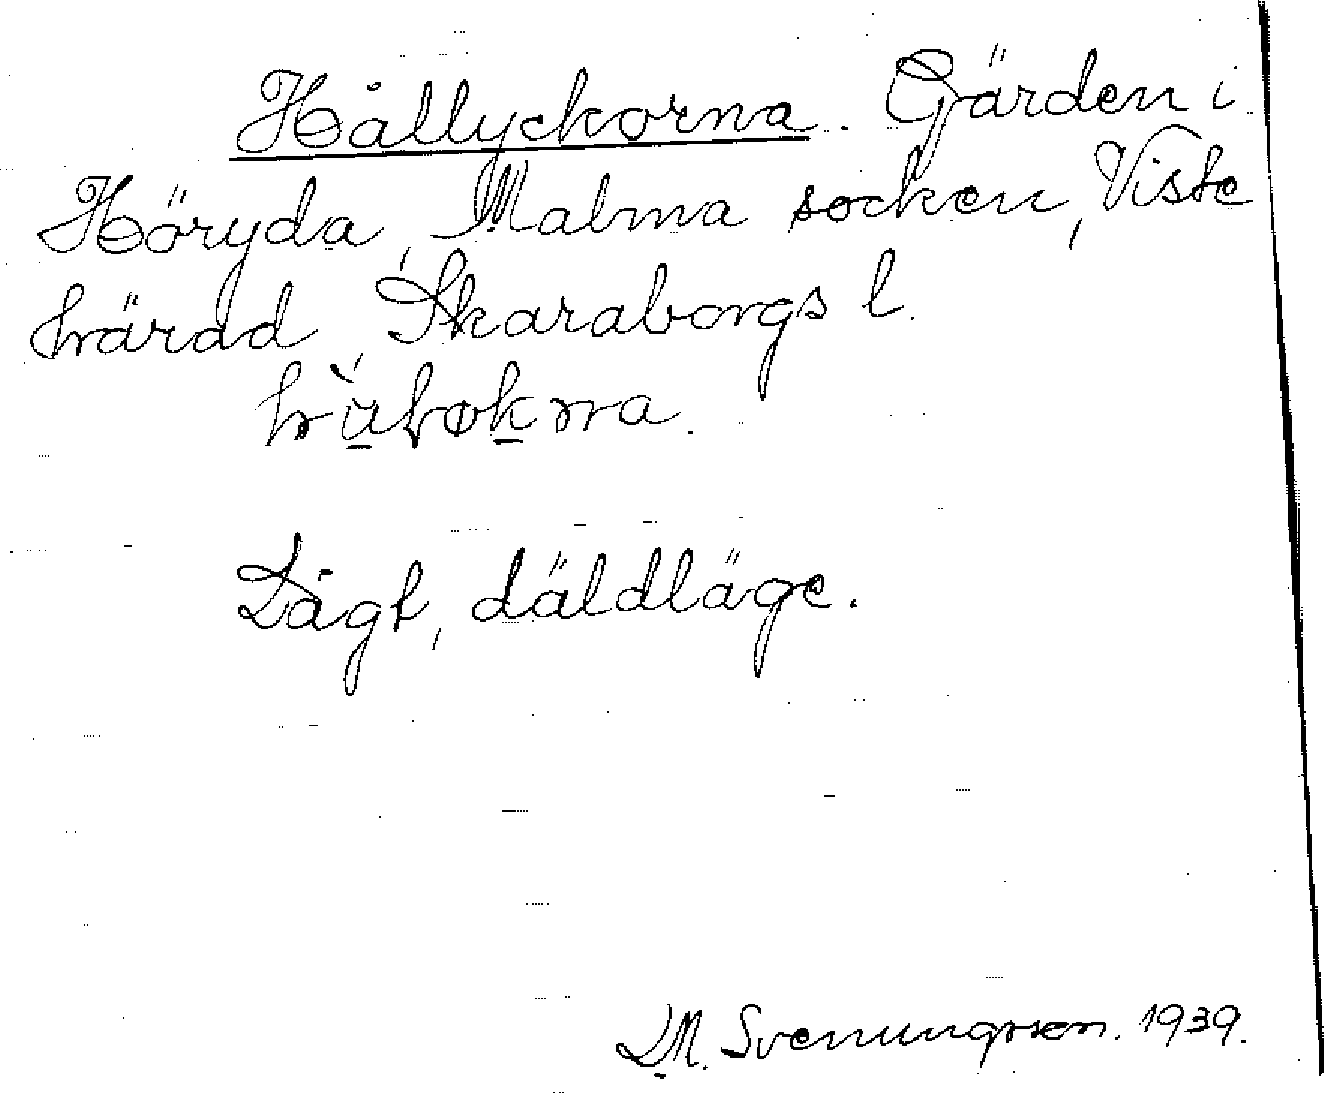 Hållyckorna. Gärden i
Höryda, Malma socken, Viste
härad, Skaraborgs l.
Lågt, däldläge.
L.M. Svenungsson. 1939.